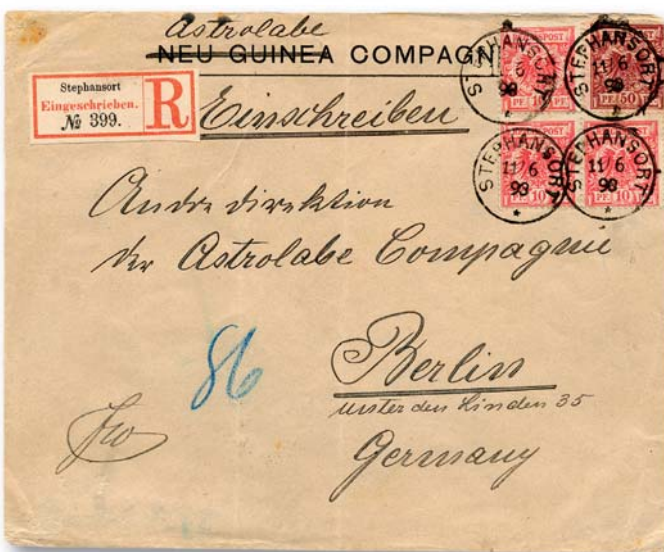 Astrolabe
NEU GUINEA COMPAG
Stephansort
Eingeschrieben.
№ 399.
R
Einschreiben
STEPHANSORT
11/6
98
STEPHANSORT
11/6
98
PF 50
STEPHANSORT
11/6
98
PF 10
STEPHANSORT
11/6
98
PF 10
An die Direktion
der Astrolabe Compagnie
86
Berlin
unter den Linden 35
Germany